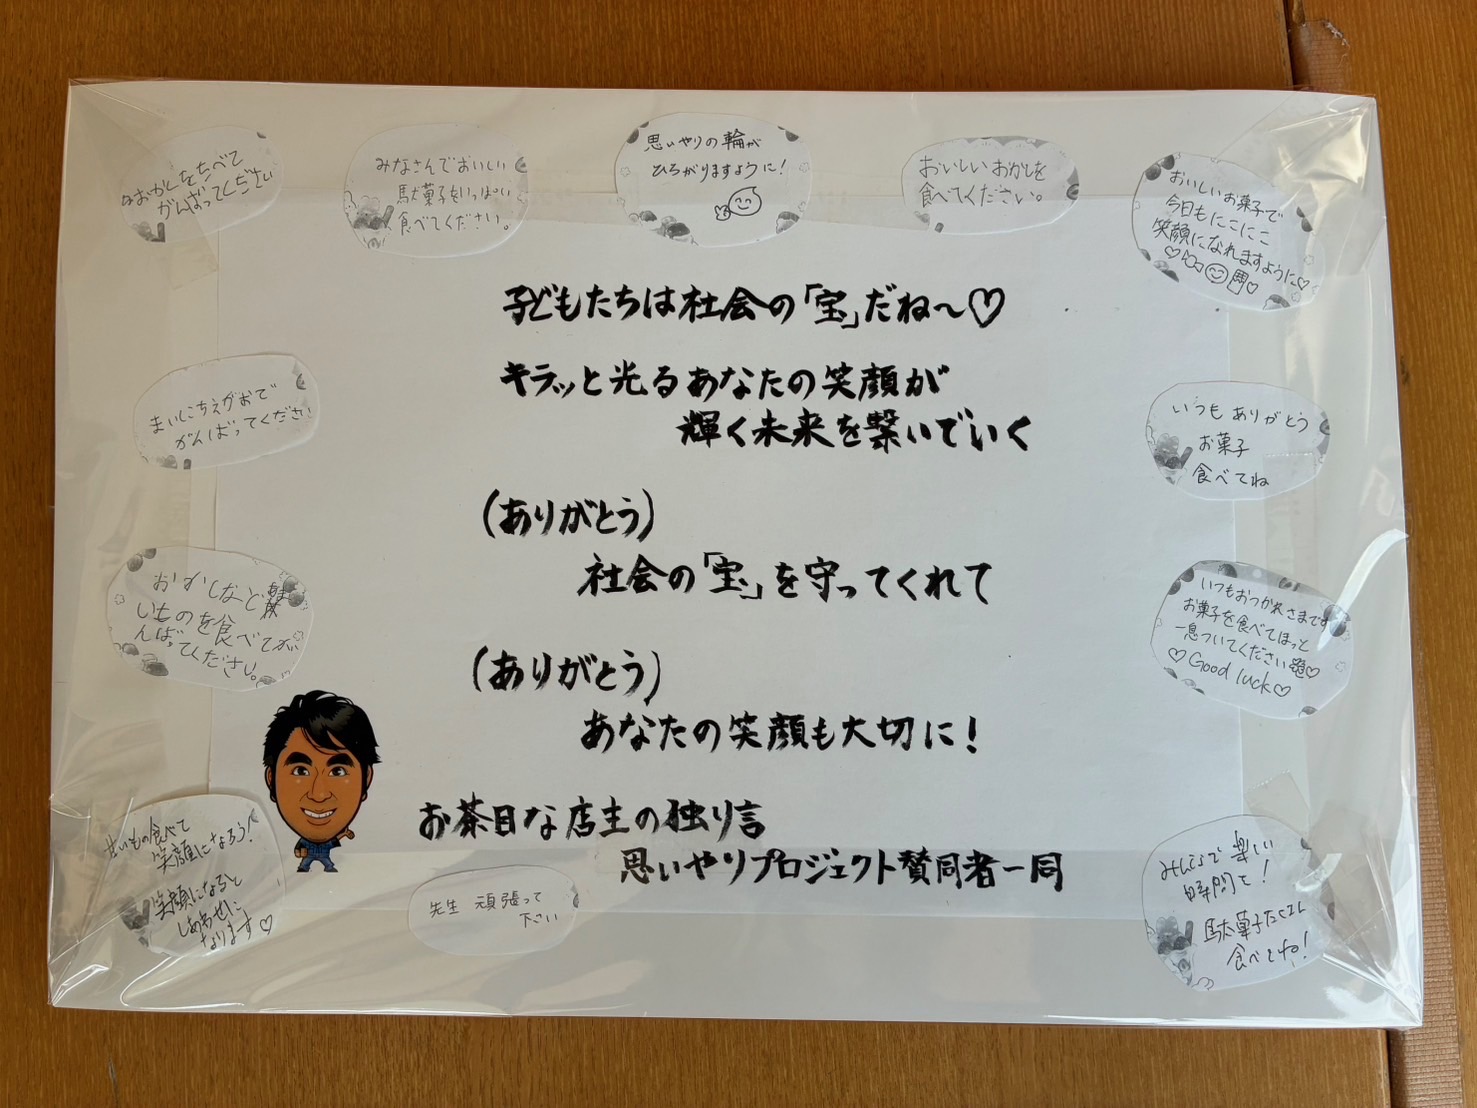 おかしをたべて
がんばってください
みなさんでおいしい
駄菓子をいっぱい
食べてください。
思いやりの輪が
ひろがりますように!
おいしいおかしを
食べてください。
おいしいお菓子で
今日もにこにこ
笑顔になれますように♡
子どもたちは社会の「宝」だね〜♡
キラッと光るあなたの笑顔が
輝く未来を繋いでいく
(ありがとう)
社会の「宝」を守ってくれて
(ありがとう)
あなたの笑顔も大切に!
お茶目な店主の独り言
思いやりプロジェクト賛同者一同
まいにちえがおで
がんばってください
いつもありがとう
お菓子
食べてね
おかしなど
いものを食べてが
んばってください。
いつもおつかれさまです
お菓子を食べてほっと
一息ついてください♡
♡Good luck♡
甘いもの食べて
笑顔になろう!
笑顔になると
しあわせに
なります♡
先生 頑張って
下さい
みんなで楽しい
時間を!
駄菓子たくさん
食べてね!